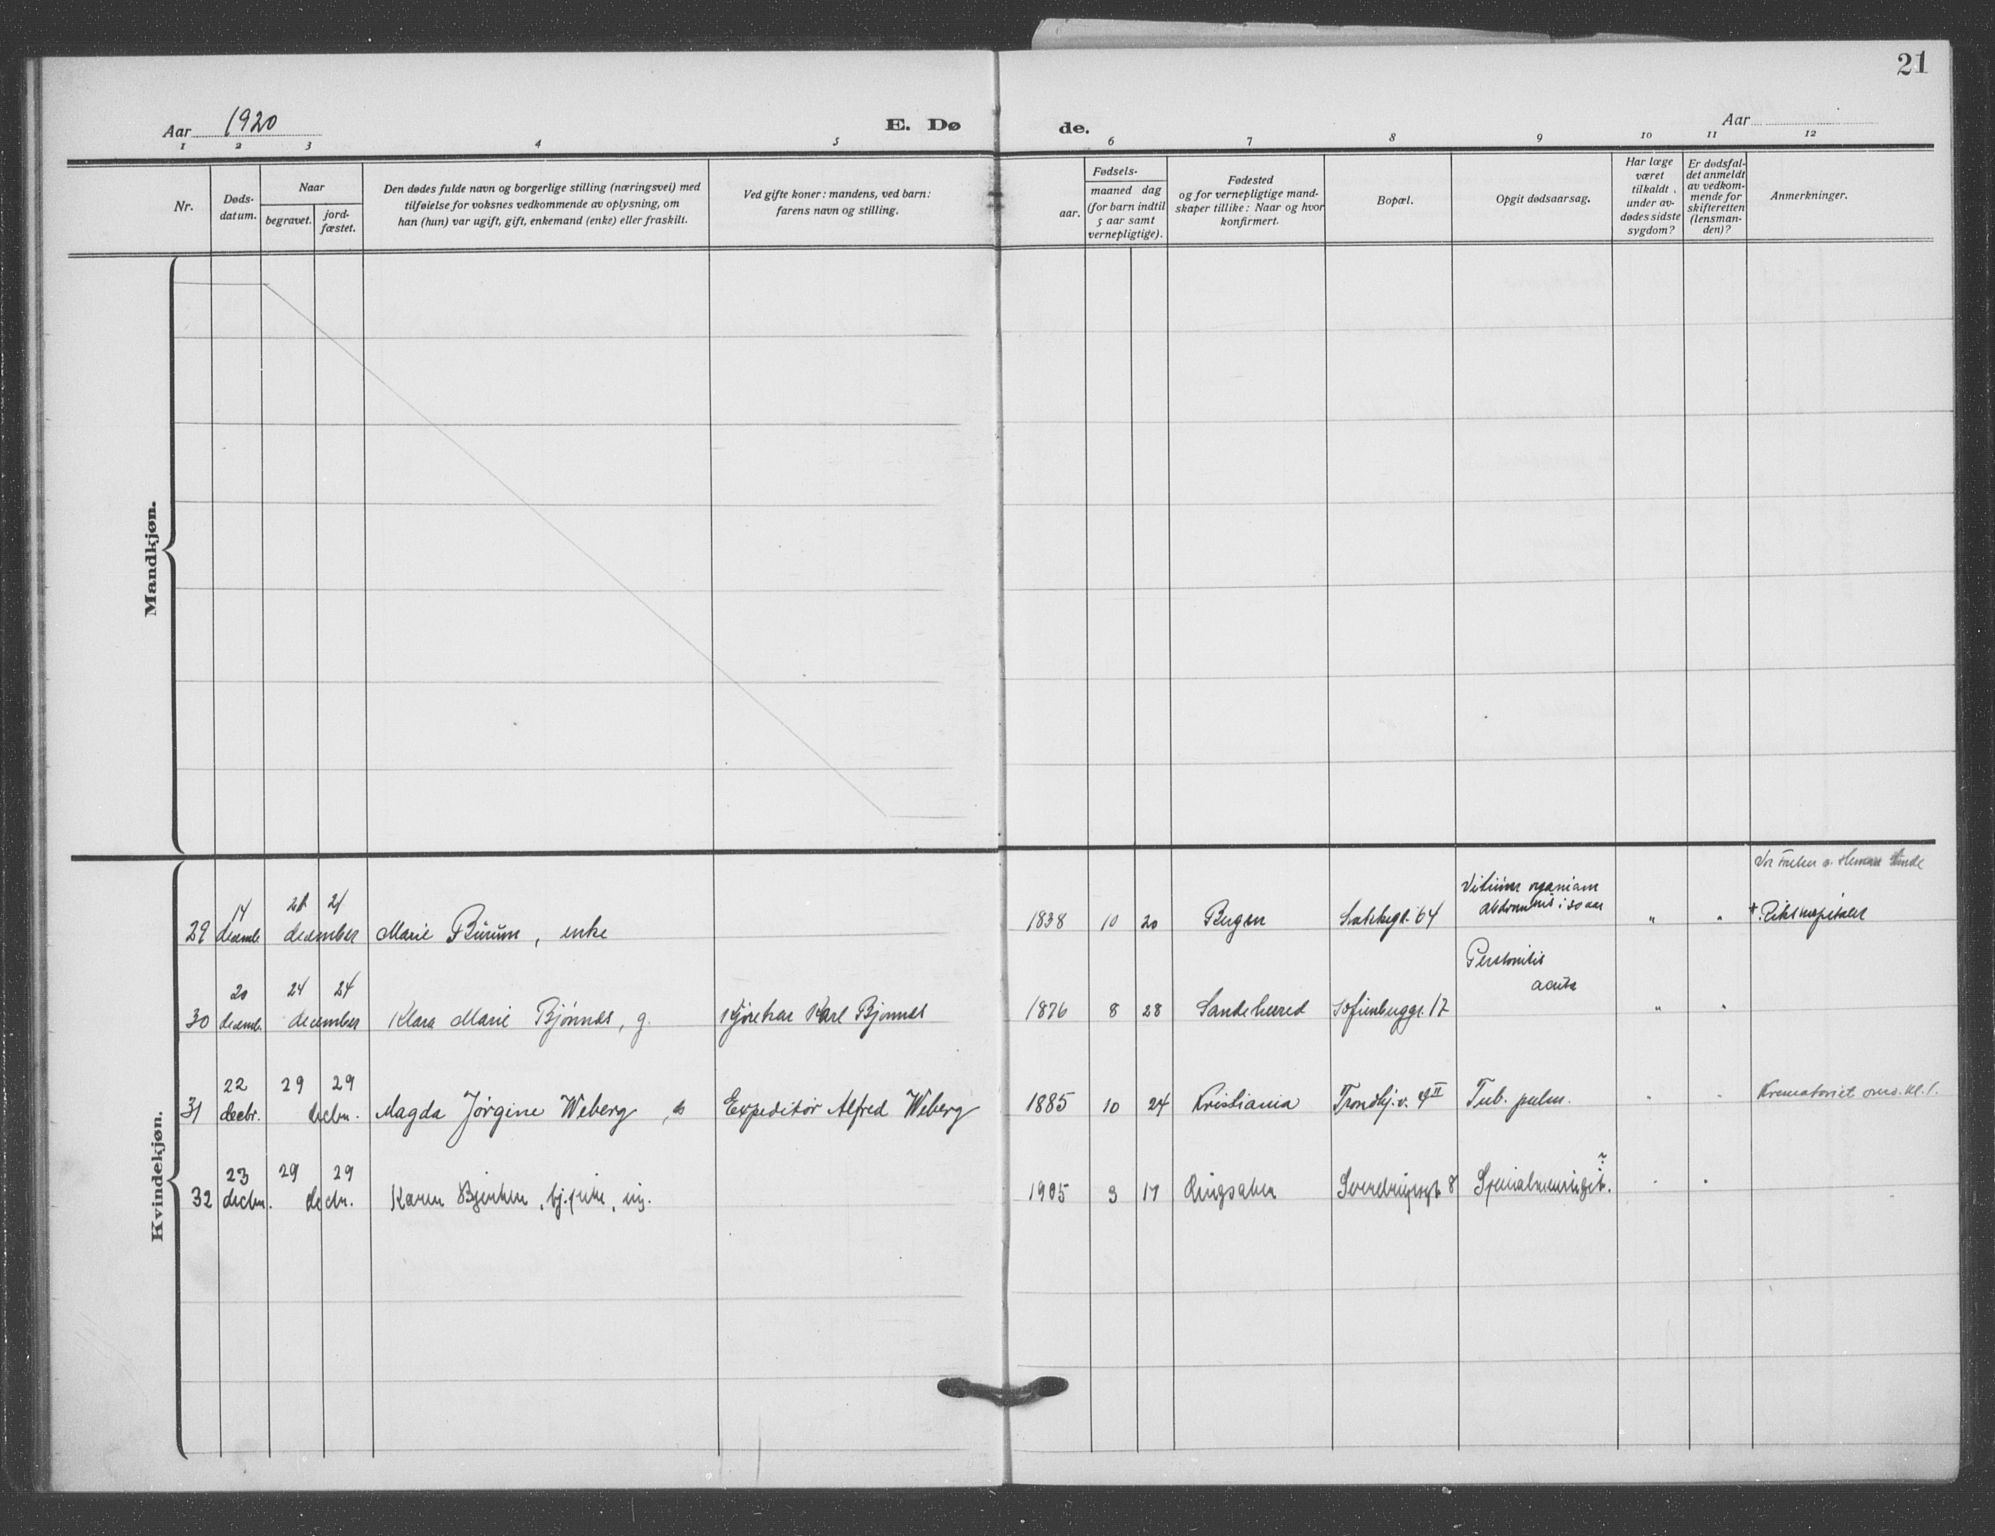 21
Aar 1920
E. Dø
de.
Aar
1 2 3 4 5 6 7 8 9 10 11 12
Nr.
Døds-
datum.
Naar
begravet.
jord-
fæstet.
Den dødes fulde navn og borgerlige stilling (næringsvei) med
tilføielse for voksnes vedkommende av oplysning, om
han (hun) var ugift, gift, enkemand (enke) eller fraskilt.
Ved gifte koner: mandens, ved barn:
farens navn og stilling.
Fødsels-
aar.
maaned dag
(for barn indtil
5 aar samt
vernepligtige).
Fødested
og for vernepligtige mand-
skaper tillike: Naar og hvor
konfirmert.
Bopæl.
Opgit dødsaarsag.
Har læge
været
tilkaldt
under av-
dødes sidste
sygdom?
Er dødsfal-
det anmeldt
av vedkom-
mende for
skifteretten
(lensman-
den)?
Anmerkninger.
Mandkjøn.
Kvindekjøn.
14 21
29 decemb. december Marie , enke 1838 10 20 Bergen 64 " " + Rikshospitalet
Peritonitis
acuta
20 24 24
30 decemb. december Klara Marie Bjønnes, g. Kjørekar Karl Bjønnes 1876 8 28 Sandeherred Sofienberggt. 17 " "
22 29 29
31 decbr. decbr. Magda Jørgine Weberg Expeditør Alfred Weberg 1885 10 24 Kristiania Trondhj.v. Tub. pulm. " " Krematoriet
23 29 29
32 decbr. decbr. Karen , ug. 1905 3 17 Ringsaker 8